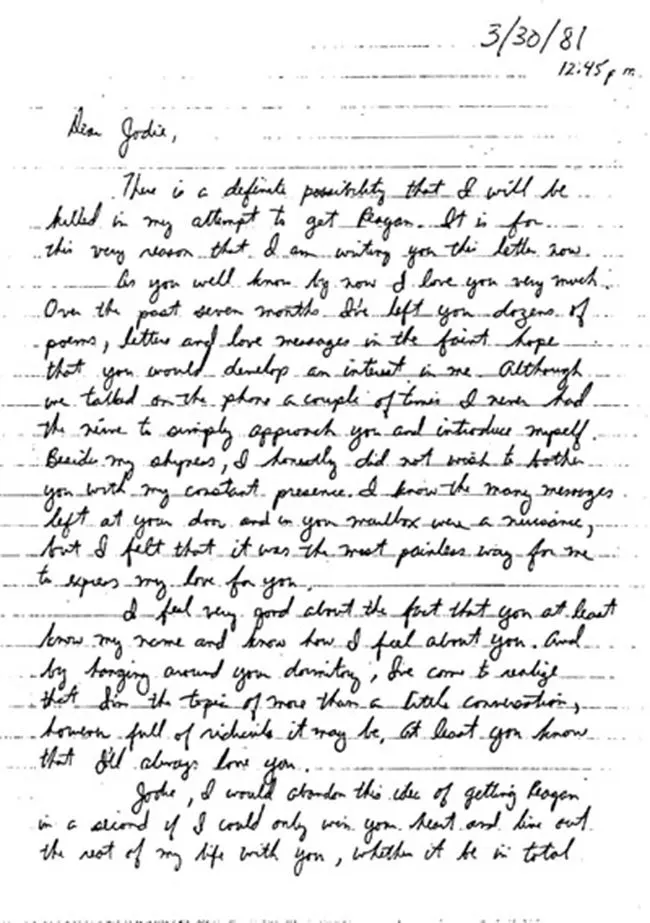 3/30/81
12:45 p.m.
Dear Jodie,
There is a definite possibility that I will be
killed in my attempt to get Reagan. It is for
this very reason that I am writing you this letter now.
As you well know by now I love you very much.
Over the past seven months I've left you dozens of
poems, letters and love messages in the faint hope
that you would develop an interest in me. Although
we talked on the phone a couple of times I never had
the nerve to simply approach you and introduce myself.
Besides my shyness, I honestly did not wish to bother
you with my constant presence. I know the many messages
left at your door and in your mailbox were a nuisance,
but I felt that it was the most painless way for me
to express my love for you.
I feel very good about the fact that you at least
know my name and know how I feel about you. And
by hanging around your dormitory, I've come to realize
that I'm the topic of more than a little conversation,
however full of ridicule it may be. At least you know
that I'll always love you.
Jodie, I would abandon this idea of getting Reagan
in a second if I could only win your heart and live out
the rest of my life with you, whether it be in total